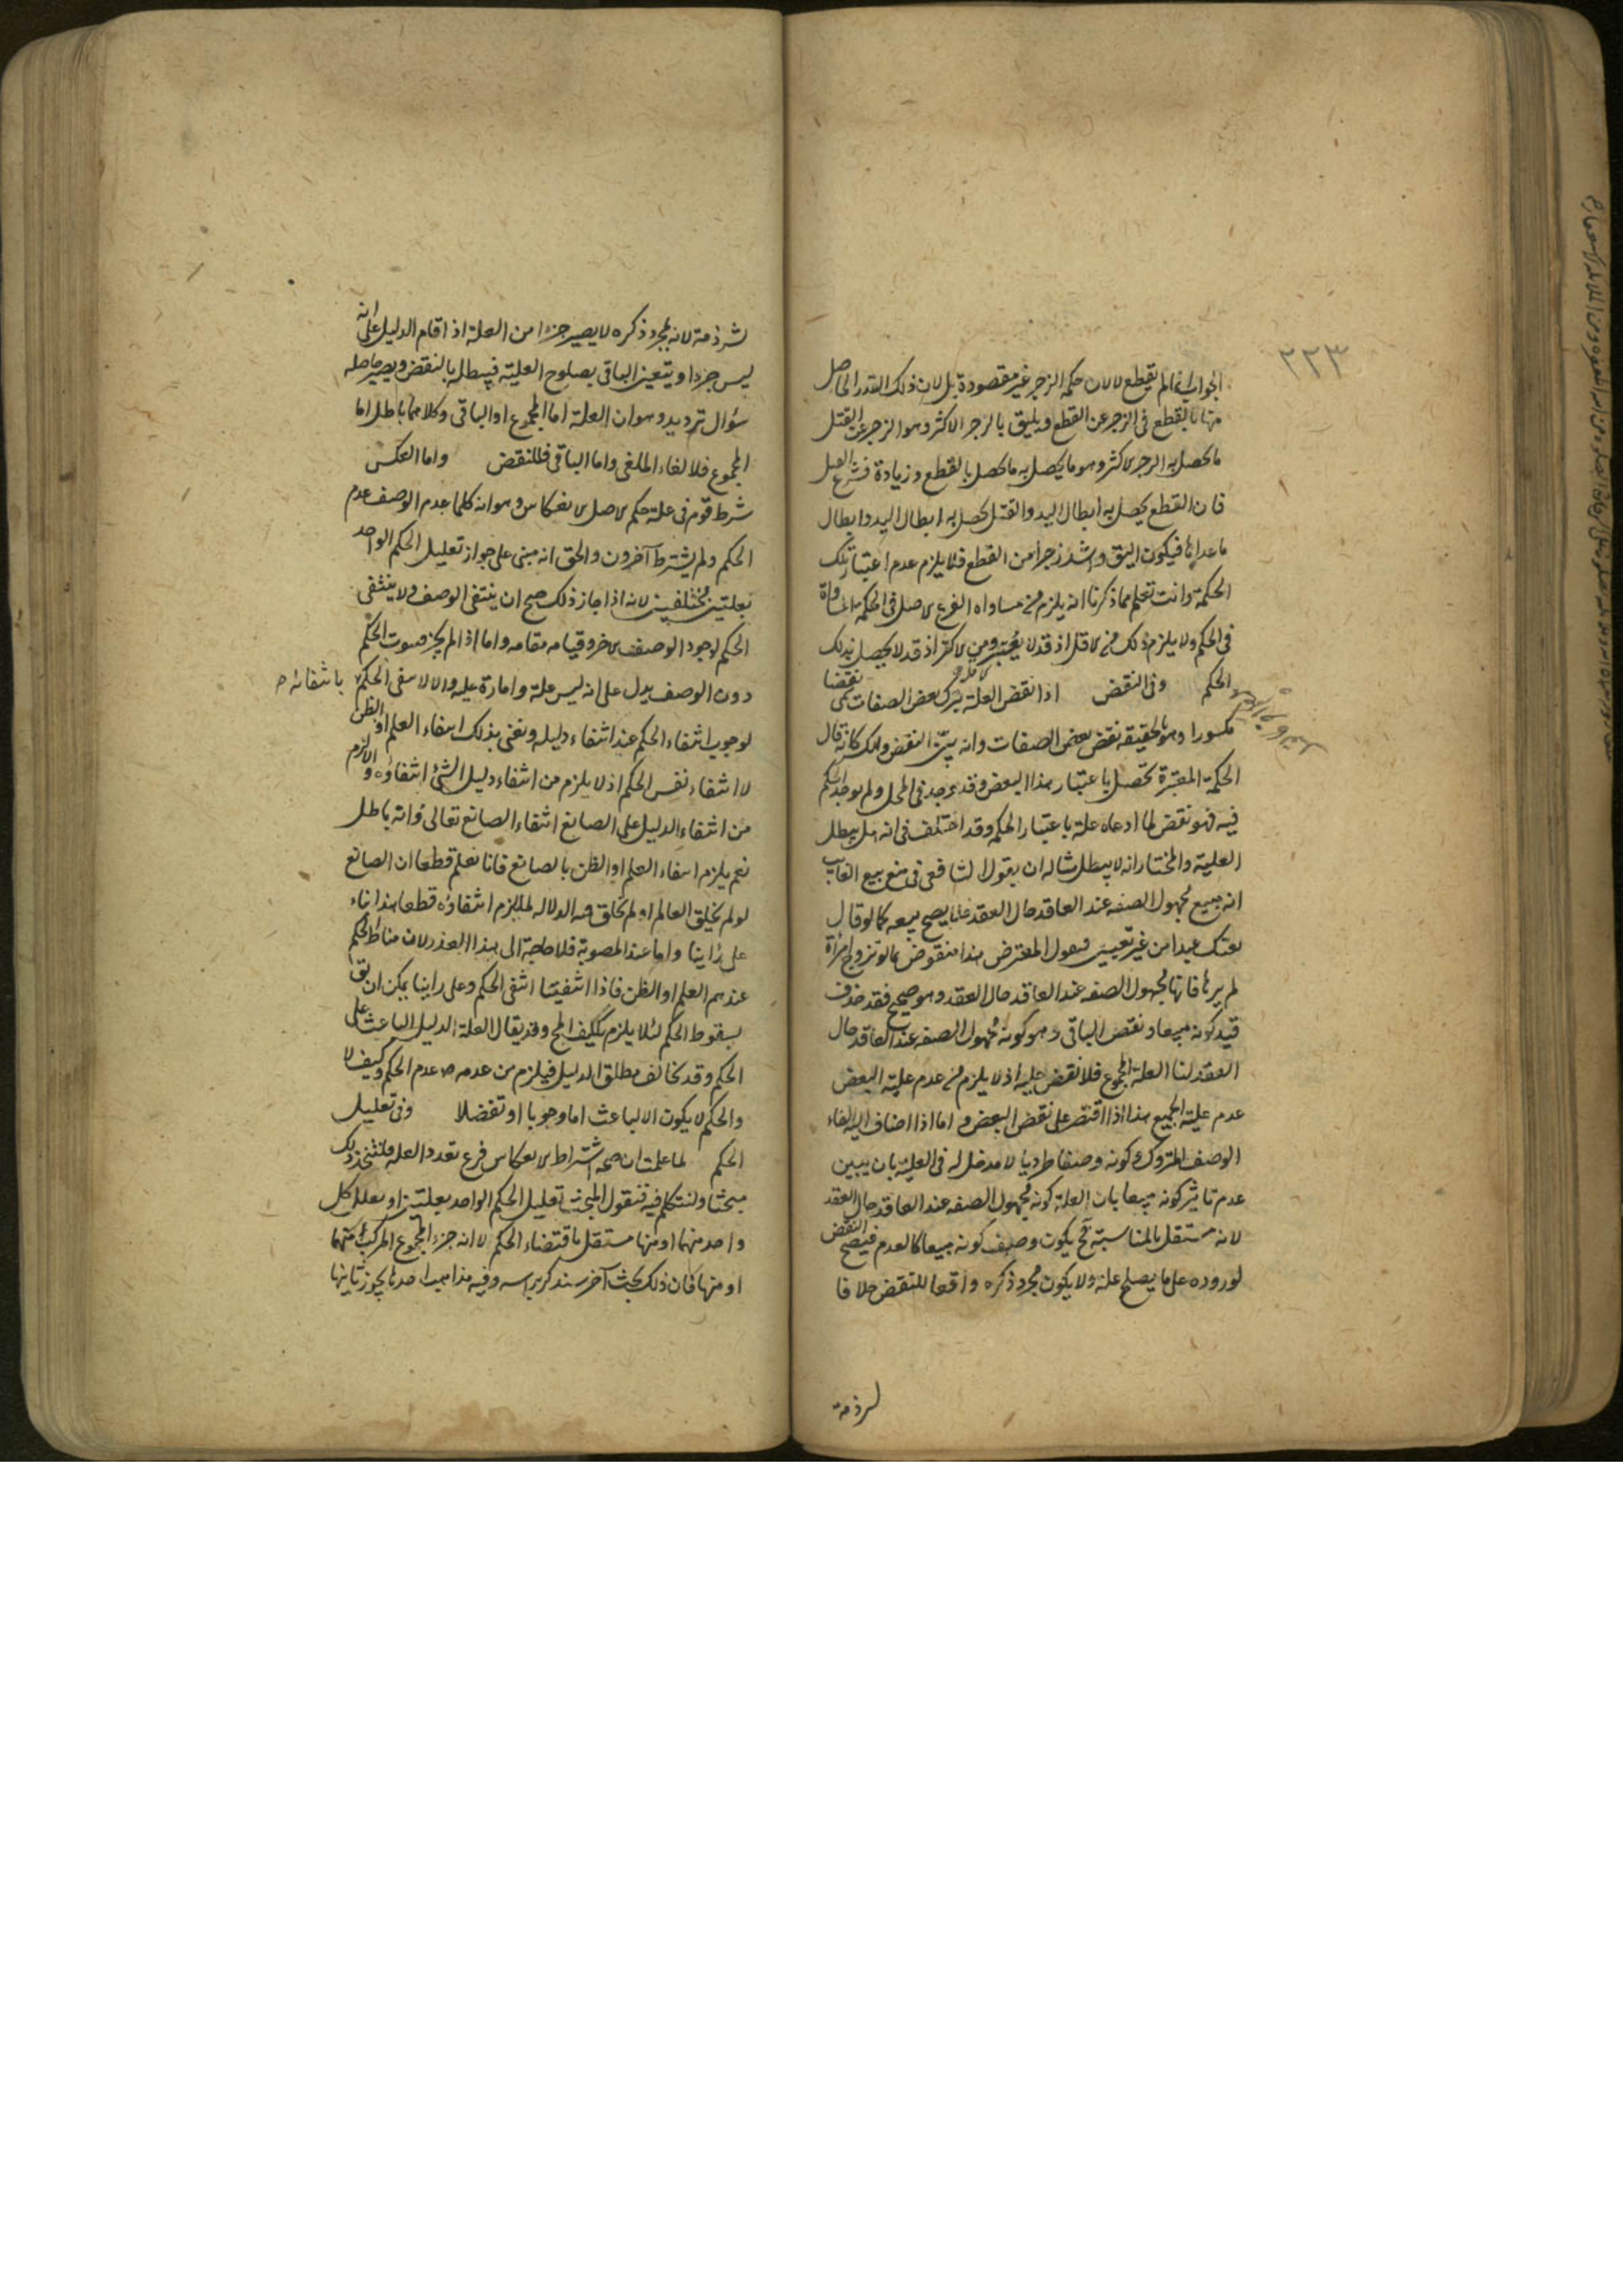 ٢٢٣
الجواب انه انما لم يقطع لا لان حكمة الزجر غير مقصودة بل لان ذلك القدر الحاصل
منها بالقطع في الزجر عن القطع ويليق بالزجر الاكثر وهو الزجر عن القتل
ما يحصل به الزجر الاكثر وهو ما يحصل به ما يحصل بالقطع وزيادة فشرع القتل
فان القطع يحصل به ابطال اليد والقتل يحصل به ابطال اليد وابطال
ما عداها فيكون اليق واشد زجرا من القطع فلا يلزم عدم اعتبار تلك
الحكمة وانت تعلم مما ذكرنا انه يلزم من مساواة الفرع الاصل في الحكمة المساواة
في الحكم ولا يلزم ذلك من الاقل اذ قد لا يعتبر ومن الاكثر اذ قد لا يحصل بذلك
الحكم وفي النقض اذا نقض العلة بترك بعض الصفات سمي نقضا
مكسورا وهو بالحقيقة نقض بعض الصفات وانه بين النقض والكسر كانه قال
الحكمة المعتبرة تحصل باعتبار هذا البعض وقد يوجد في المحل ولم يوجد الحكم
فيه فهو نقض لما ادعاه علة باعتبار الحكمة وقد اختلف في انه هل يبطل
العلية والمختار انه لا يبطل مثاله ان يقول الشافعي في منع بيع الغايب
انه مبيع مجهول الصفه عند العاقد حال العقد فلا يصح بيعه كما لو قال
بعتك عبدا من غير تعيين فيقول المعترض هذا منقوض بما لو تزوج امرأة
لم يرها فانها مجهول الصفه عند العاقد حال العقد وهو صحيح فقد حذف
قيد كونه مبيعا ونقض الباقي وهو كونه مجهول الصفه عند العاقد حال
العقد لنا العلة المجموع فلا نقض عليه اذ لا يلزم من عدم علية البعض
عدم علية الجميع هذا اذا اقتصر على نقض البعض و اما اذا اضاف اليه الغاء
الوصف المتروك وكونه وصفا طرديا لا مدخل له في العلية بان يبين
عدم تاثير كونه مبيعا بان العلة كونه مجهول الصفه عند العاقد حال العقد
لانه مستقل بالمناسبة فح يكون وصف كونه مبيعا كالعدم فيصح النقض
لوروده على ما يصلح علة ولا يكون مجرد ذكره واقعا للنقض خلافا
لشرذمة
لشرذمة لانه بمجرد ذكره لا يصير جزءا من العلة اذا قام الدليل على انه
ليس جزءا ويتعين الباقي بصلوح العلية فيبطل بالنقض ويصير حاصله
سؤال ترديد وهو ان العلة اما المجموع او الباقي وكلاهما باطل اما
المجموع فلالغاء الملغى واما الباقي فللنقض واما العكس
شرط قوم في علة حكم الاصل الانعكاس وهو انه كلما عدم الوصف عدم
الحكم ولم يشترط آخرون والحق انه مبنى على جواز تعليل الحكم الواحد
بعلتين مختلفتين لانه اذا جاز ذلك صح ان ينتفى الوصف ولا ينتفى
الحكم لوجود الوصف الاخر وقيامه مقامه واما اذا لم يجز فثبوت الحكم
دون الوصف يدل على انه ليس علة وامارة عليه والا لانتفى الحكم بانتفائه
لوجوب انتفاء الحكم عند انتفاء دليله ونعنى بذلك انتفاء العلم او الظن
لا انتفاء نفس الحكم اذ لا يلزم من انتفاء دليل الشئ انتفاؤه والا لزم
من انتفاء الدليل على الصانع انتفاء الصانع تعالى وانه باطل
نعم يلزم انتفاء العلم او الظن بالصانع فانا نعلم قطعا ان الصانع
لو لم يخلق العالم او لم يخلق فيه الدلاله لما لزم انتفاؤه قطعا هذا بناء
على رأينا واما عند المصوبة فلا حاجة الى هذا العذر لان مناط الحكم
عندهم العلم او الظن فاذا انتفيتا انتفى الحكم وعلى رأينا يمكن ان يق
بسقوط الحكم لئلا يلزم تكليف المح وقد يقال العلة الدليل الباعث على
الحكم وقد يخالف مطلق الدليل فيلزم من عدمه عدم الحكم وكيف لا
والحكم لا يكون الا لباعث اما وجوبا او تفضلا وفي تعليل
الحكم لما علمت ان صحة اشتراط الانعكاس فرع تعدد العلة فلنتخذ ذلك
مبحثا ولنتكلم فيه فنقول المبحث تعليل الحكم الواحد بعلتين او بعلل كل
واحد منهما او منها مستقل باقتضاء الحكم لا انه جزء المجموع المركب منهما
او منها فان ذلك بحث آخر سنذكره وفيه مذاهب احدها يجوز ثانيها